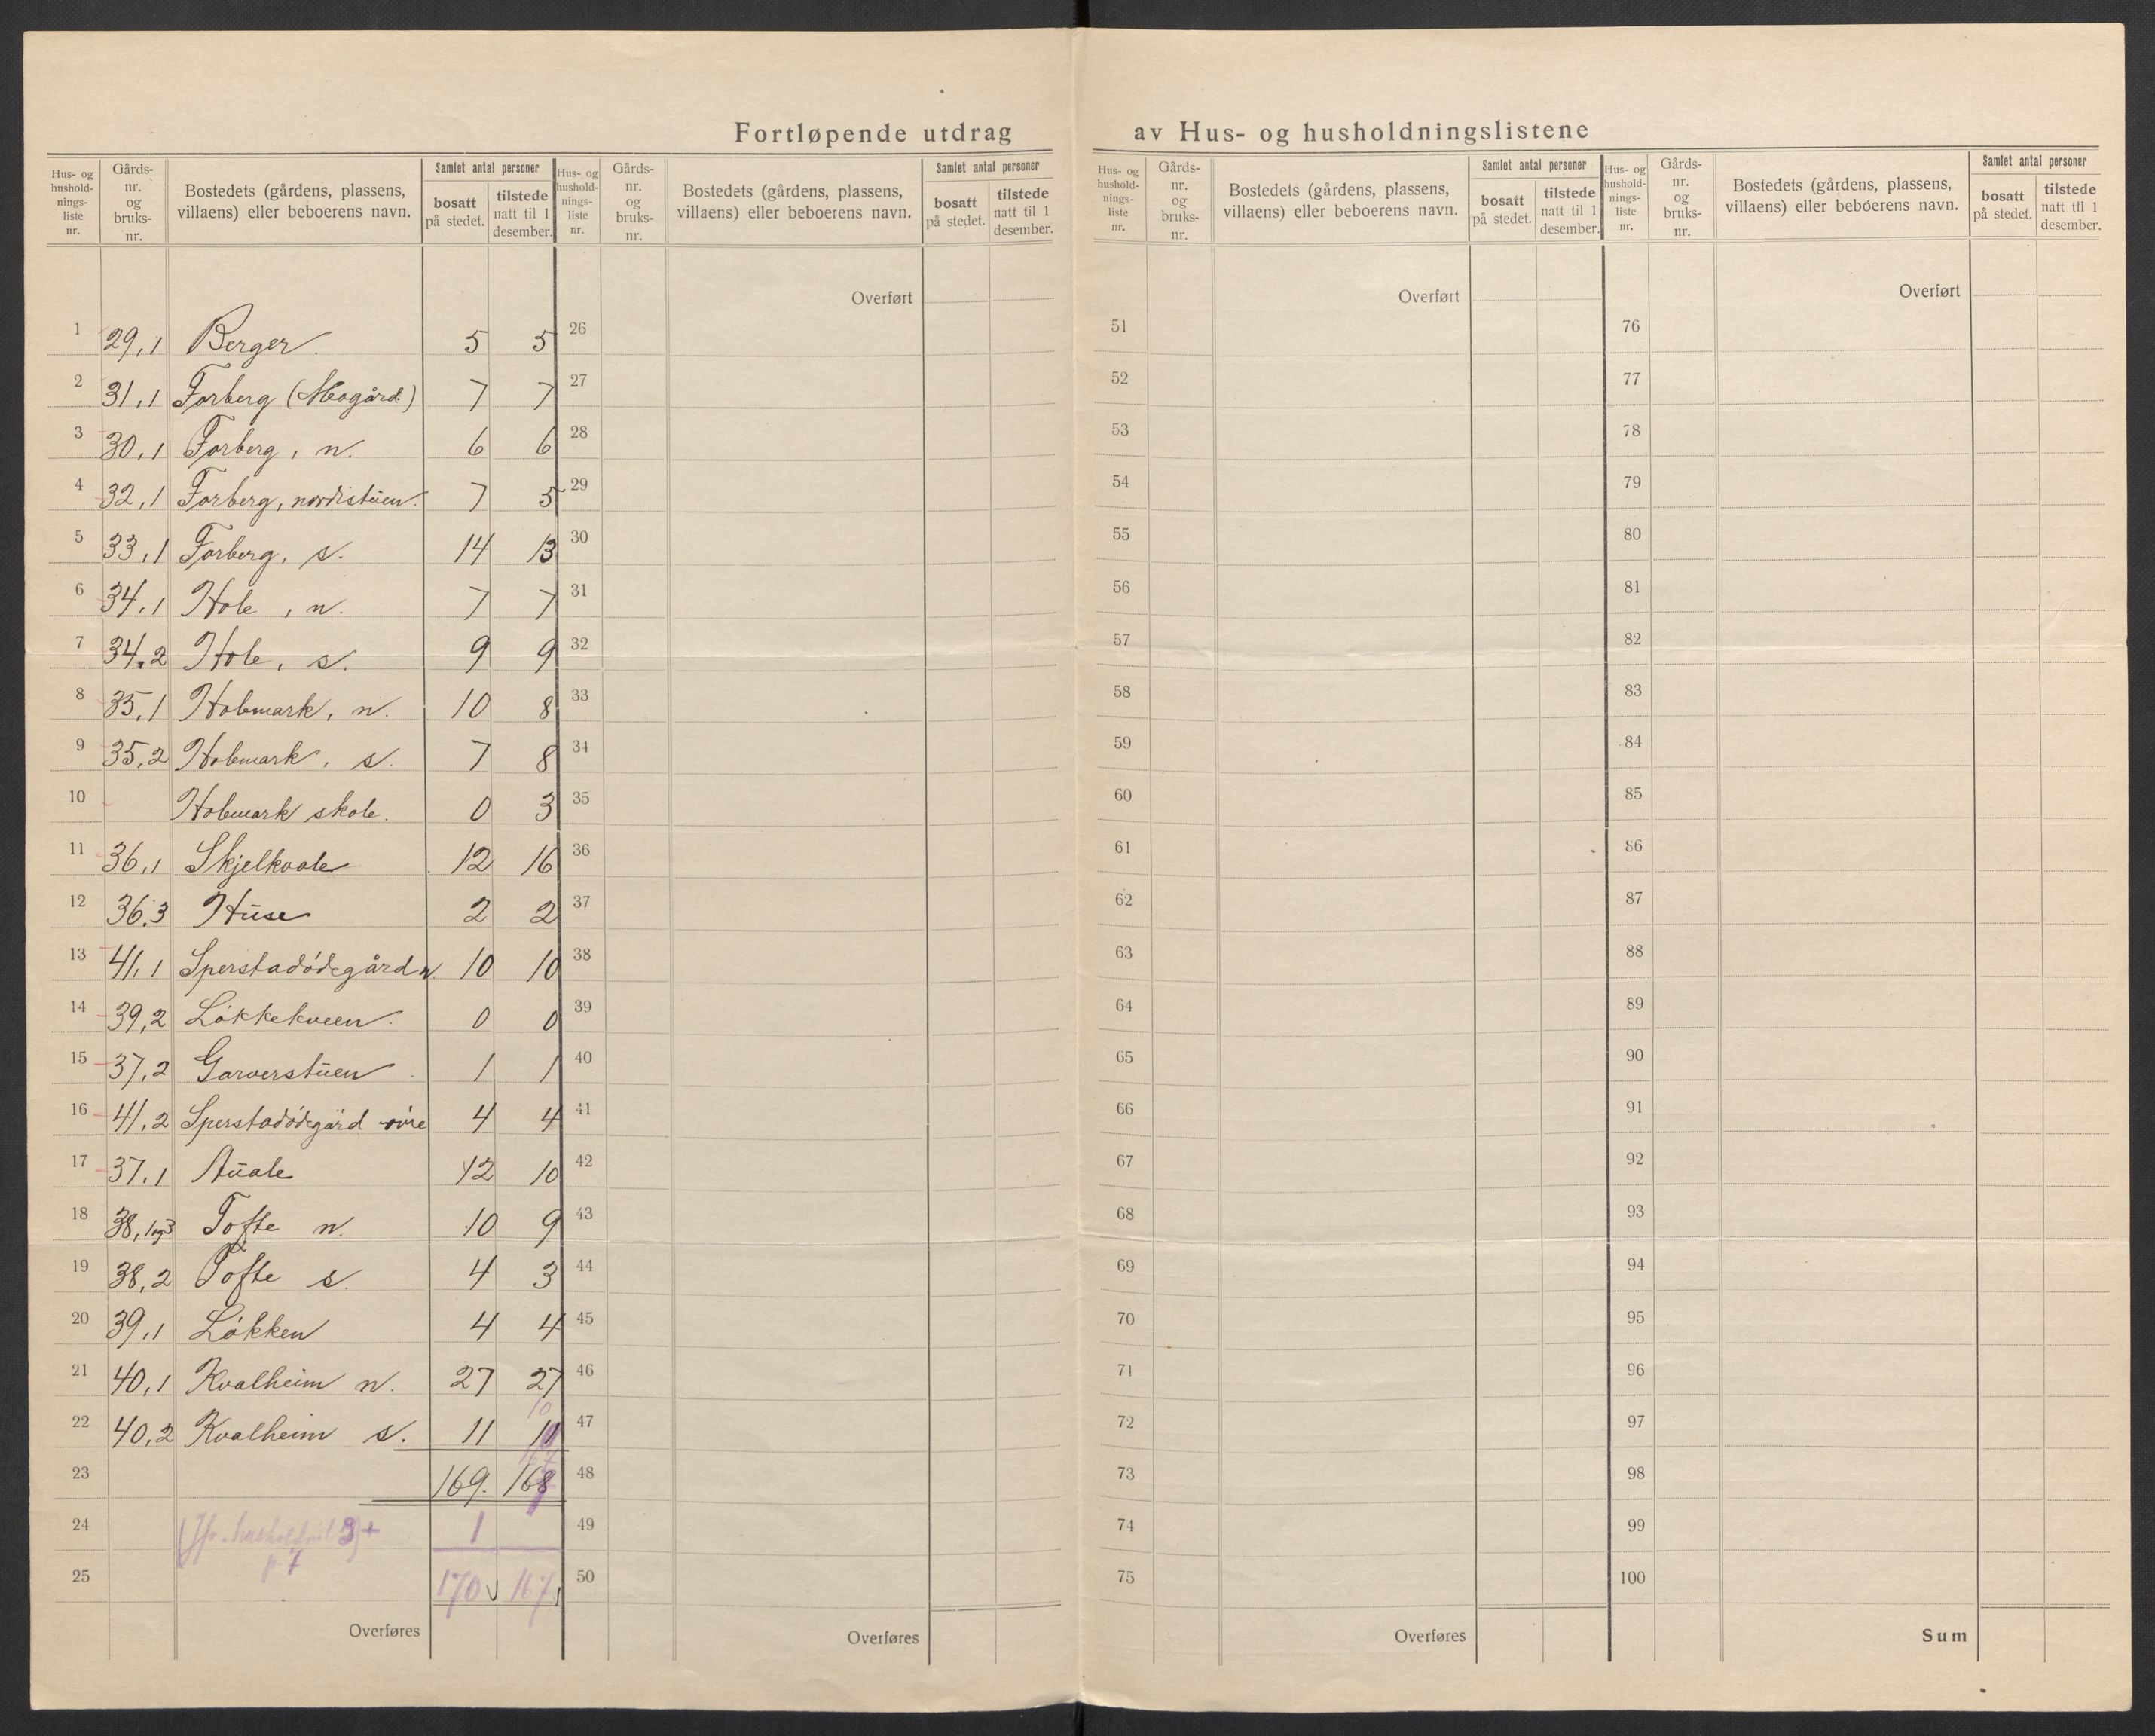 Fortløpende utdrag av Hus- og husholdningslistene
Hus- og husholdningsliste nr. Gårds- nr. og bruks- nr. Bostedets (gårdens, plassens, villaens) eller beboerens navn. Samlet antal personer bosatt på stedet. tilstede natt til 1 desember.
Hus- og husholdningsliste nr. Gårds- nr. og bruks- nr. Bostedets (gårdens, plassens, villaens) eller beboerens navn. Samlet antal personer bosatt på stedet. tilstede natt til 1 desember.
Hus- og husholdningsliste nr. Gårds- nr. og bruks- nr. Bostedets (gårdens, plassens, villaens) eller beboerens navn. Samlet antal personer bosatt på stedet. tilstede natt til 1 desember.
Hus- og husholdningsliste nr. Gårds- nr. og bruks- nr. Bostedets (gårdens, plassens, villaens) eller beboerens navn. Samlet antal personer bosatt på stedet. tilstede natt til 1 desember.
Overført Overført Overført
1 29,1 Berger. 5 5 26 51 76
2 31,1 Forberg (Meogård) 7 7 27 52 77
3 30,1 Forberg, n. 6 6 28 53 78
4 32,1 Forberg, nordistuen. 7 5 29 54 79
5 33,1 Forberg, s. 14 13 30 55 80
6 34,1 Hole, n. 7 7 31 56 81
7 34,2 Hole, s. 9 9 32 57 82
8 35,1 Holemark, n. 10 8 33 58 83
9 35,2 Holemark, s. 7 8 34 59 84
10 Holemark skole. 0 3 35 60 85
11 36,1 Skjelkvale 12 16 36 61 86
12 36,3 Huse 2 2 37 62 87
13 41,1 Sperstadødegård n. 10 10 38 63 88
14 39,2 Løkkekveen. 0 0 39 64 89
15 37,2 Garverstuen. 1 1 40 65 90
16 41,2 Sperstadødegård øvre 4 4 41 66 91
17 37,1 Auale 12 10 42 67 92
18 38,1og3 Tofte n. 10 9 43 68 93
19 38,2 Tofte s. 4 3 44 69 94
20 39,1 Løkken 4 4 45 70 95
21 40,1 Kvalheim n. 27 27 46 71 96
10
22 40,2 Kvalheim s. 11 11 47 72 97
167
23 169. 168 48 73 98
24 (Jfr. 3)+ 1 49 74 99
p 7
25 170 167 50 75 100
Overføres Overføres Overføres Sum